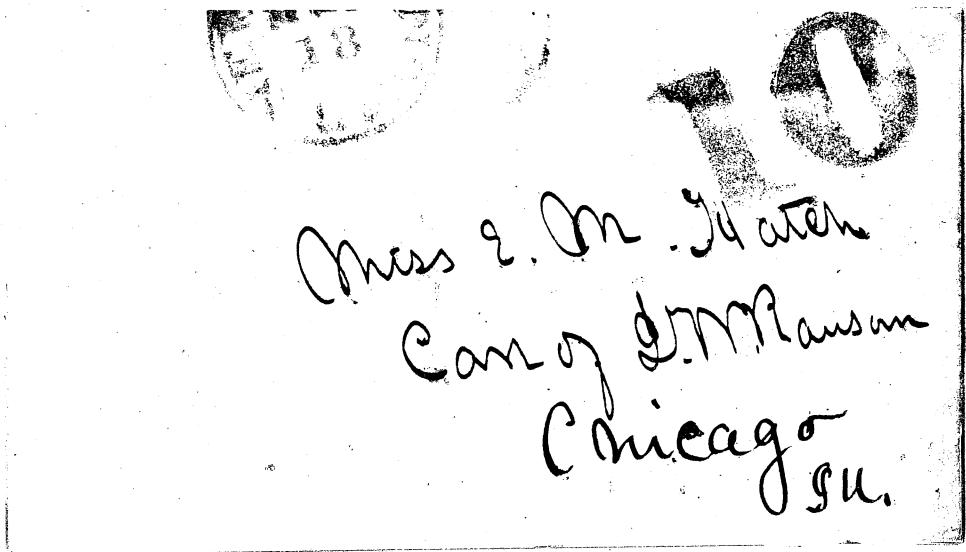 18
10
Miss E. M. Hatch
Care of Ransom
Chicago
Ill.